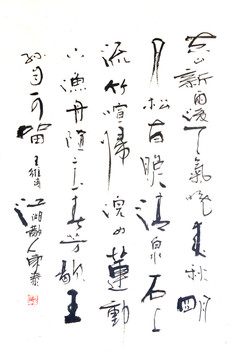 空山新雨後天氣晚来秋明
月松間照清泉石上
流竹喧歸浣女蓮動
下漁舟隨意春芳歇王
孫自可留 王維詩 江湖散人